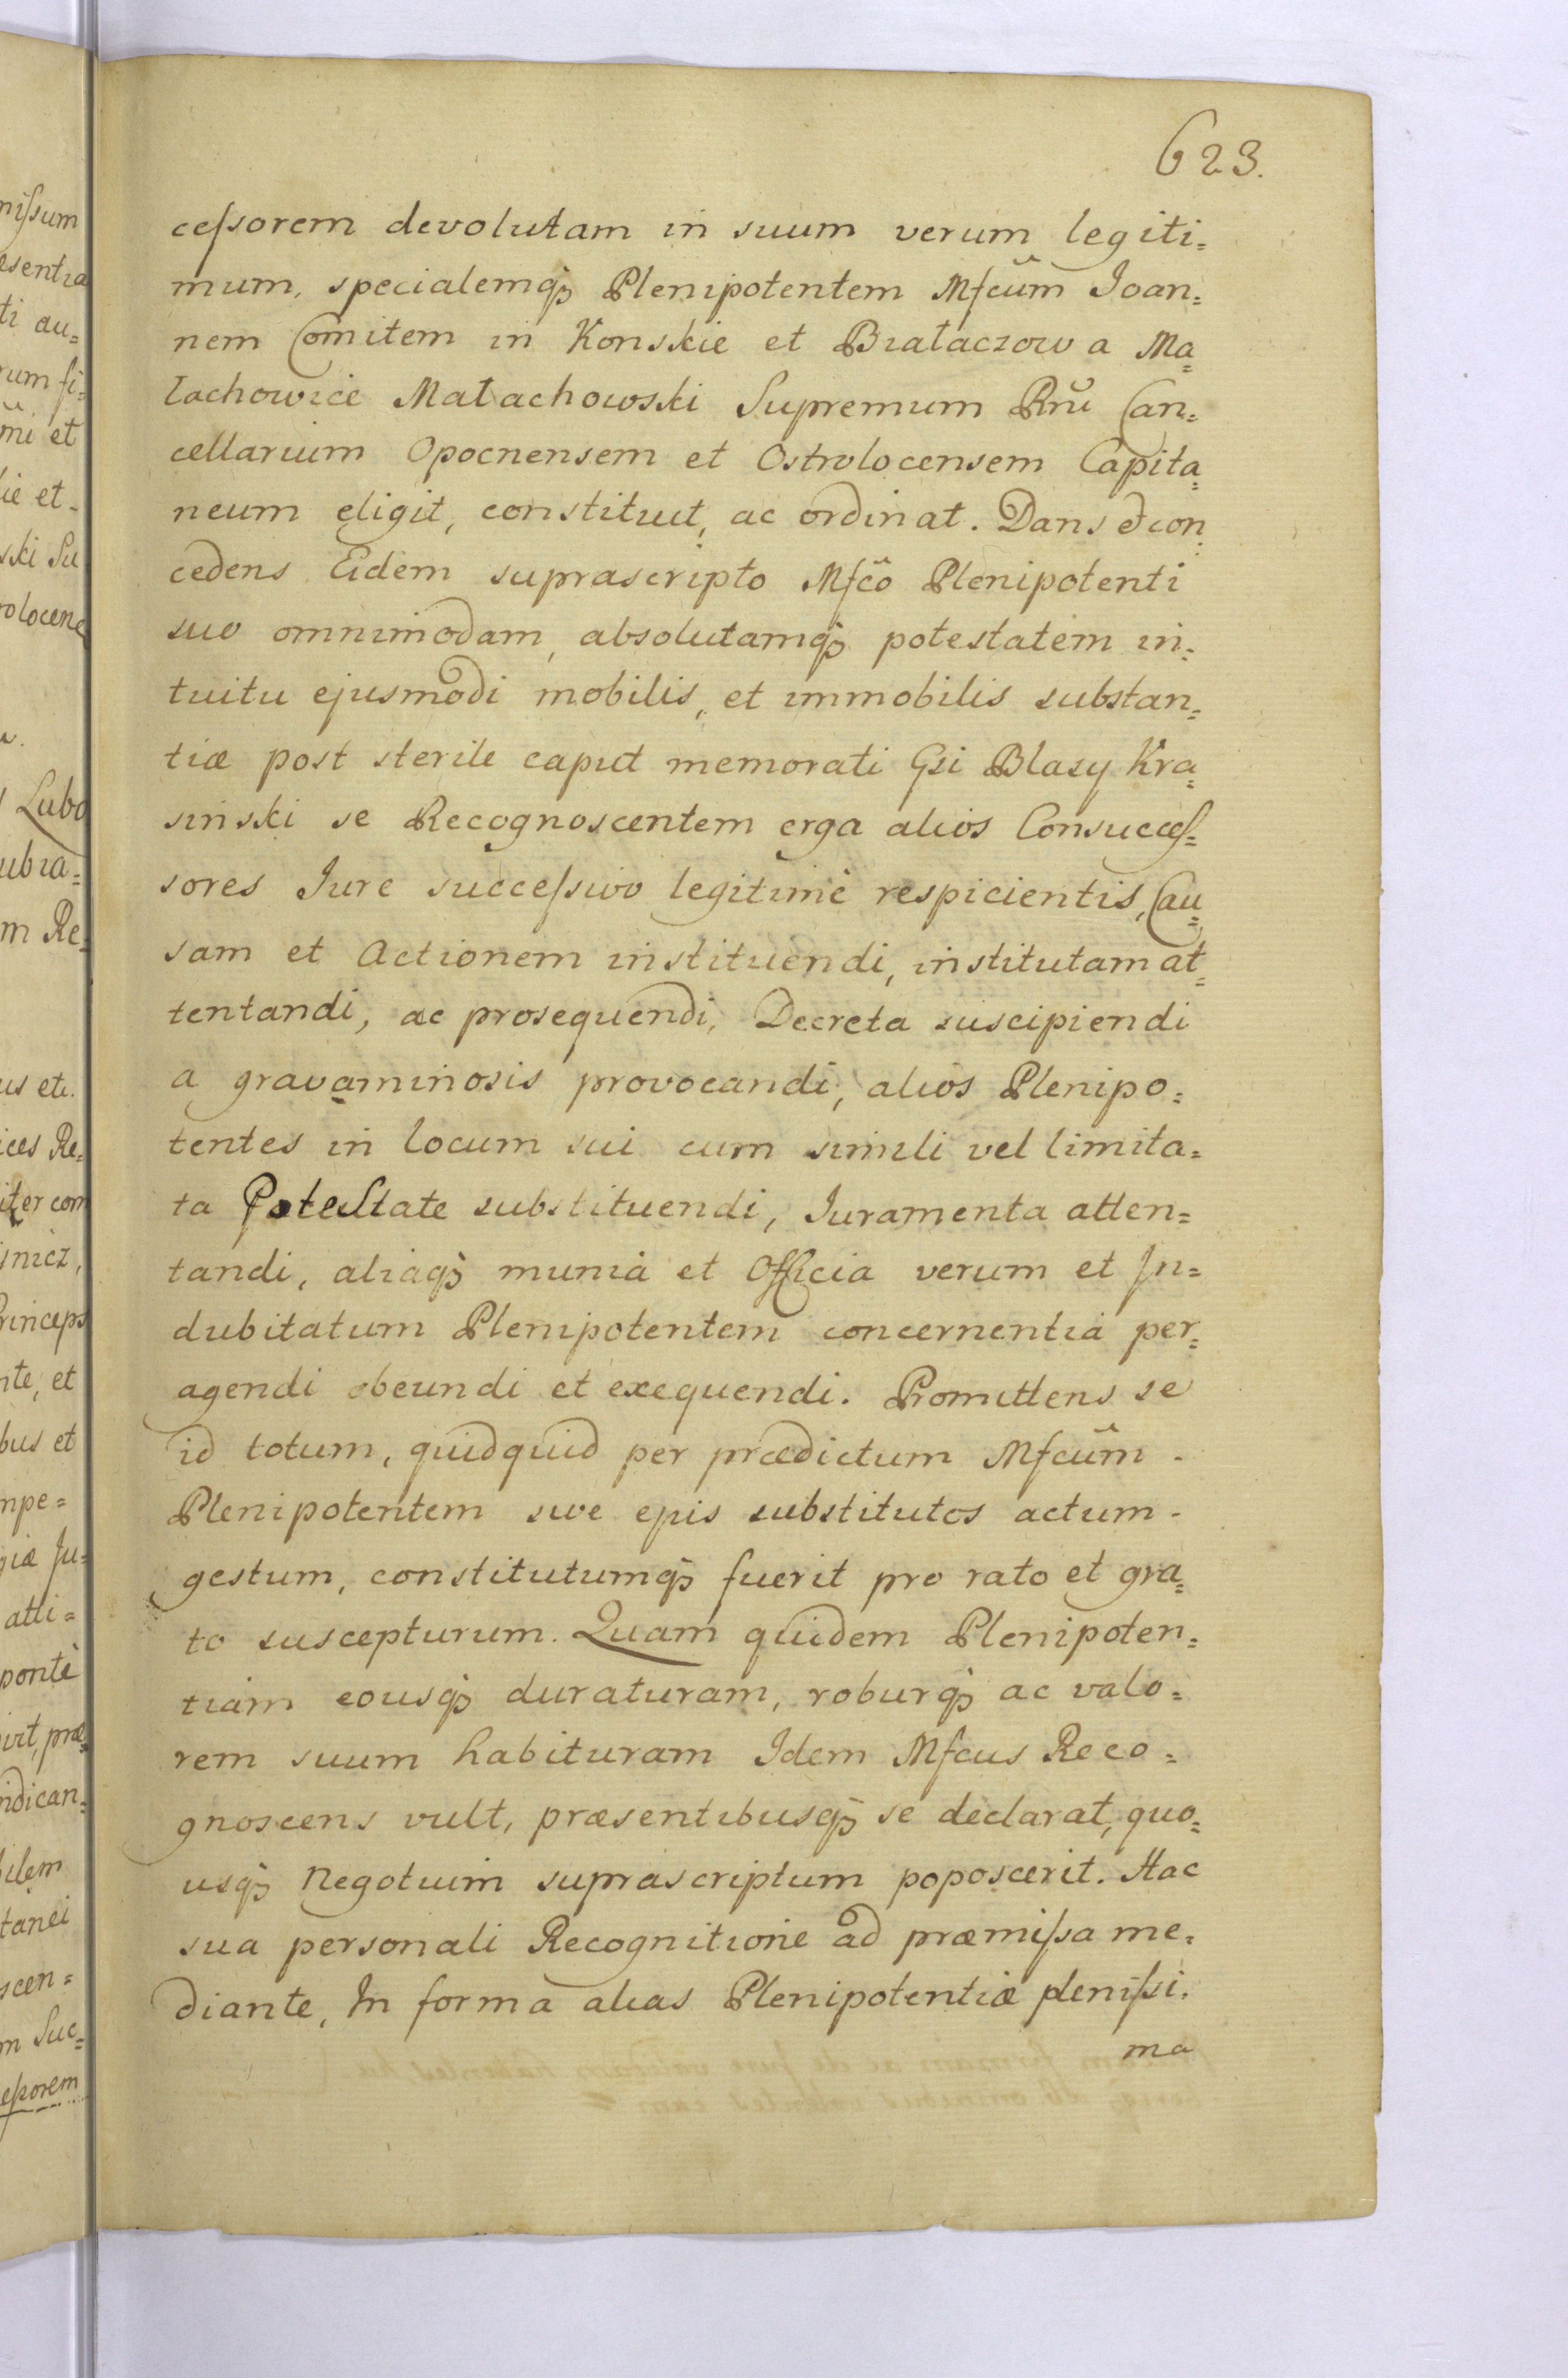 623.
ceſsorem devolutam in suum verum legiti=
mum, specialemq̃ Plenipotentem Mfcũm Joan=
nem Comitem in Konskie et Białaczow a Ma=
łachowice Małachowski Supremum Rnũ Can=
cellarium Opocnensem et Ostrolocensem Capita=
neum eligit, constituit, ac ordinat. Dans & con=
cedens Eidem suprascripto Mfc̃o Plenipotenti
suo omnimodam, absolutamq̃ potestatem in=
tuitu ejusmodi mobilis, et immobilis substan=
tiæ post sterile caput memorati Gsi Blasy Kra=
sinski se Recognoscentem erga alios Consucceſ=
sores Jure succeſsivo legitimè respicientis, Cau=
sam et Actionem instituendi, institutam at=
tentandi, ac prosequendi, Decreta suscipiendi
a gravaminosis provocandi, alios Plenipo=
tentes in locum sui cum simili vel limita=
ta Poteſtate substituendi, Juramenta atten=
tandi, aliaq̃ munia et Officia verum et In=
dubitatum Plenipotentem concernentia per=
agendi obeundi et exequendi. Promittens se
id totum, quidquid per prædictum Mfcũm -
Plenipotentem sive ejus substitutos actum -
gestum, constitutumq̃ fuerit pro rato et gra=
to suscepturum. Quam quidem Plenipoten=
tiam eousq̃ duraturam, roburq̃ ac valo=
rem suum habituram Idem Mfcus Reco=
gnoscens vult, præsentibusq̃ se declarat, quo=
usq̃ Negotium suprascriptum poposcerit. Hac
sua personali Recognitione ad præmiſsa me=
diante, In forma alias Plenipotentiæ pleniſsi=
ma